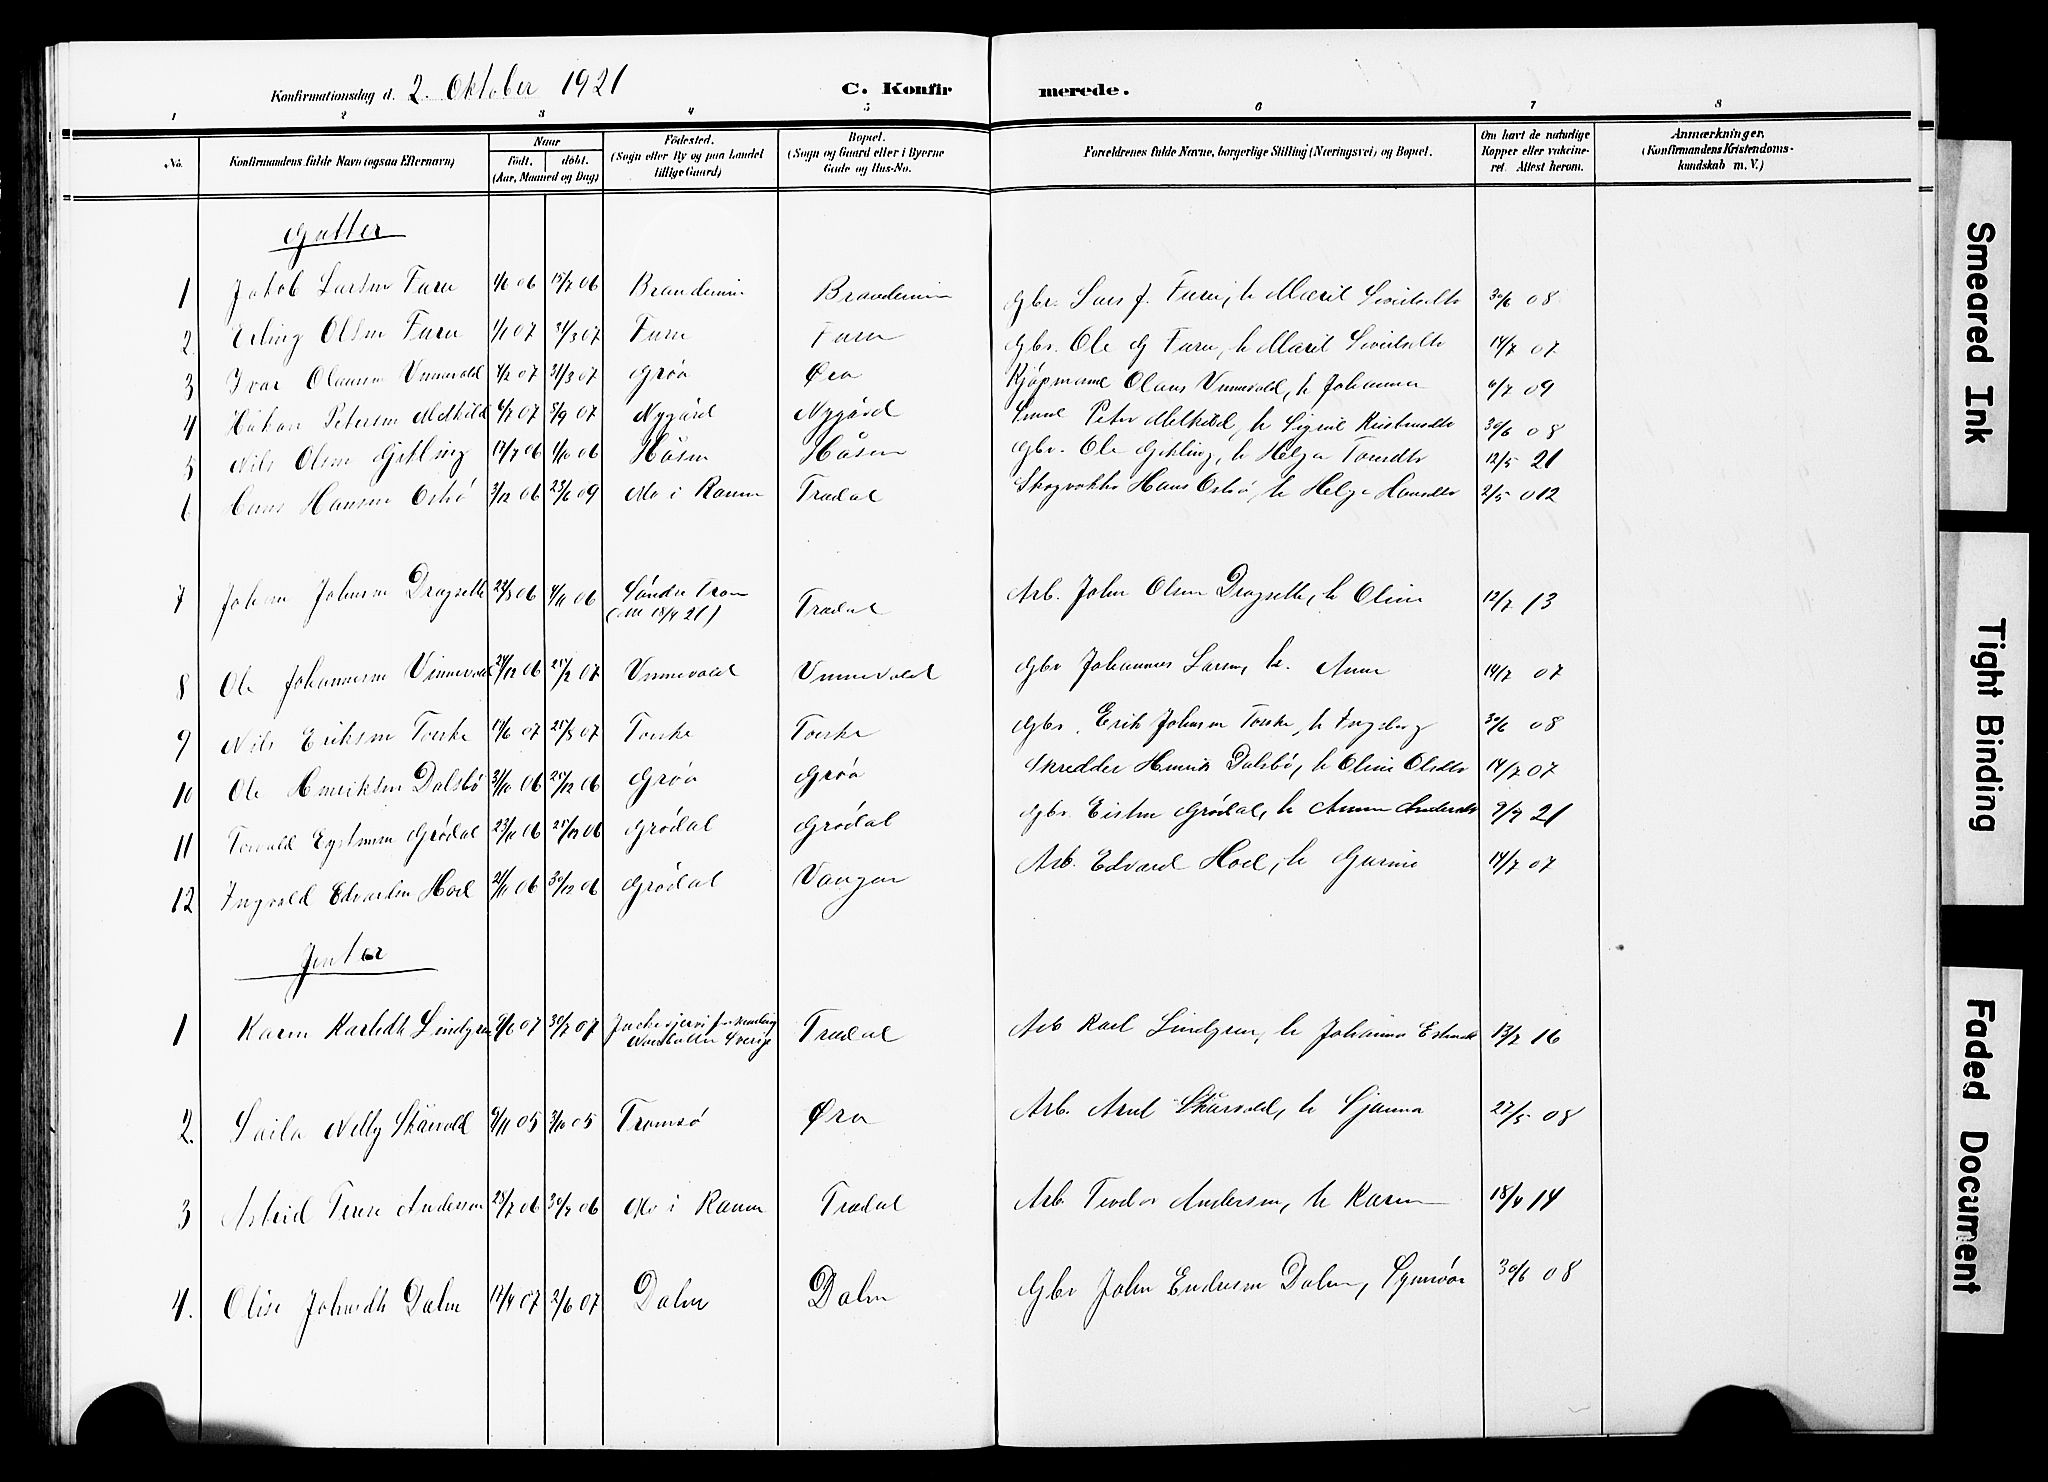 Konfirmationsdag d. 2. Oktober 1921 C. Konfirmerede.
1 2 3 4 5 6 7 8
No. Konfirmandens fulde Navn (ogsaa Efternavn) Naar födt, döbt. (Aar, Maaned og Dag) Födested. (Sogn eller By og paa Landet tillige Gaard) Bopæl. (Sogn og Gaard eller i Byerne Gade og Hus-No. Forældrenes fulde Navne, borgerlige Stilling (Næringsvei) og Bopæl. Om havt de naturlige Kopper eller vakcineret. Attest herom. Anmærkninger. (Konfirmandens Kristendomskundskab m. V.)
Gutter
1 Jakob Larsen Furu 06 15/7 06 Brandemin Brandemin Gbr. Lars J. Furu, h Marit Sivertsdtr 30/6 08
2. Erling Olsen Furu 1/1 07 31/3 07 Furu Furu Gbr. Ole G Furu, h Marit Sivertsdtr 14/7 07
3 Ivar Olausen Vinnevold 4/2 07 31/3 07 Grøa Øra Kjøpmand Olaus Vinnevold, h Johanna 6/7 09
4 Håkon Petersen Melkild 6/7 07 8/9 07 Nygård Nygård Peter Melkild, h Sigrid 30/6 08
5 Nils Olsen Gikling 17/7 06 1/10 06 Håsen Håsen Gbr. Ole Gikling, h Helga Toresdtr 12/5 21
6 Hans Hansen Osbø 3/12 06 23/6 09 Mo i Ranen Trædal Skogvokter Hans Osbø, h Helga Hansdtr 2/5 012
7 Johan Johnsen Dragseth 22/8 06 4/11 06 Søndre Tran (utm 18/4 21) Trædal Arb. John Olsen Dragseth, h Oline 12/7 13
8 Ole Johannesen Vinnevold 24/12 06 25/2 07 Vinnevold Vinnevold Gbr Johannes Larsen, h. Anne 14/7 07
9 Nils Eriksen Torske 07 25/8 07 Torske Torske Gbr. Erik Johnsen Torske, h Ingeborg 30/6 08
10 Ole Henriksen Dalsbø 31/10 06 25/12 06 Grøa Grøa Skredder Henrik Dalsbø, h Oline Olsdtr 14/7 07
11 Torvald Eystensen Grødal 23/11 06 25/12 06 Grødal Grødal Gbr. Eisten Grødal, h Anne Andersdtr 9/4 21
12 Ingvald Edvardsen Hoel 21/11 06 30/12 06 Grødal Vangen Arb. Edvard Hoel, h Gurine 14/7 07
Jenter
1 Karen Karlsdtr Lindgren 9/6 07 30/7 07 Juckasjervi forsamling Norrbotten Sverige Trædal Arb Karl Lindgren, h Johanna 13/7 16
2. Laila Nelly Skårvold 05 3/10 05 Tromsø Øra Arb. Arnt Skårvold, h Gjanna 27/5 08
3 Astrid Terese Andersen 25/7 06 30/7 06 Mo i Ranen Trædal Arb. Teodor Andersen, h Karen 18/4 14
4. Olise Johnsdtr Dalen 14/4 07 2/6 07 Dalen Dalen Gbr John Endresen Dalen, Synnøve 30/6 08
Smeared Ink
Tight Binding
Faded Document